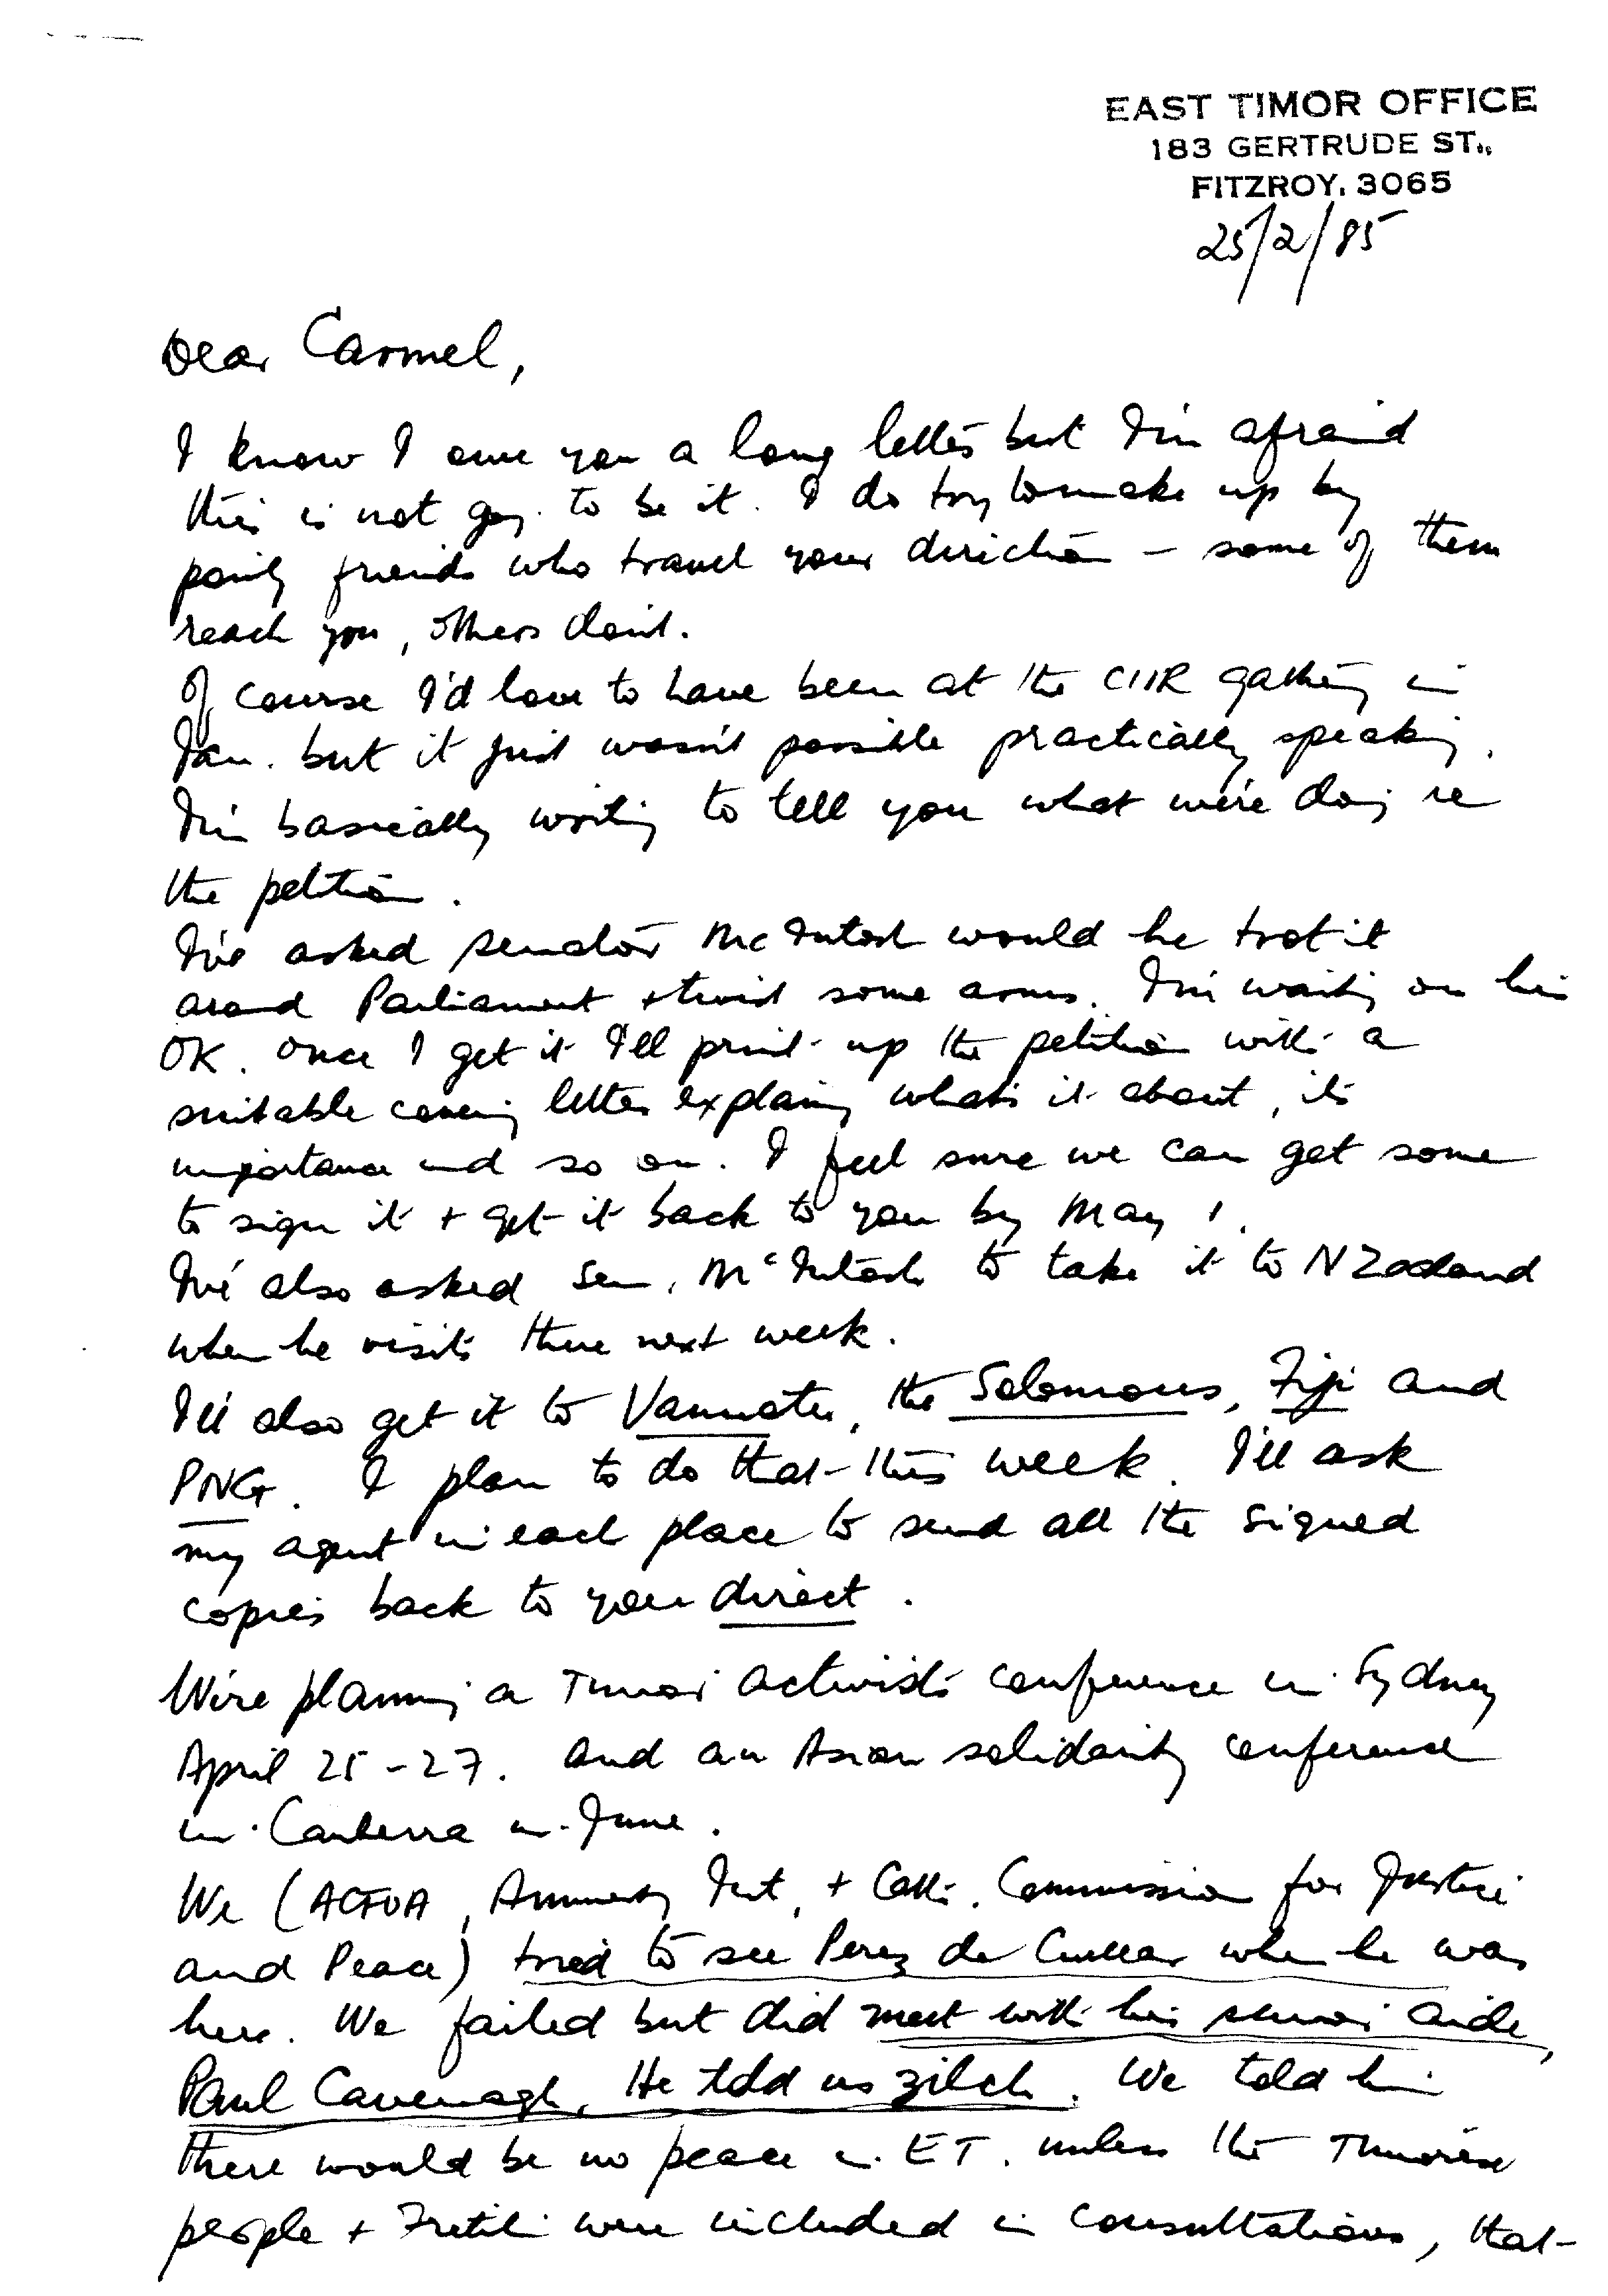 EAST TIMOR OFFICE
183 GERTRUDE ST.,
FITZROY, 3065
25/2/85
Dear Carmel,
I know I owe you a long letter but I'm afraid
this is not gog. to be it. I do try to make up by
pointg friends who travel your direction – some of them
reach you, others don't.
Of course I'd love to have been at the CIIR gathering in
Jan. but it just wasn't possible practically speaking.
I'm basically writing to tell you what we're doing re
the petition.
I've asked Senator McIntosh would he trot it
around Parliament + twist some arms. I'm waiting on his
OK. Once I get it I'll print up the petition with a
suitable covering letter explaing what's it about, its
importance and so on. I feel sure we can get some
to sign it + get it back to you by May 1.
I've also asked Sen. McIntosh to take it to N Zealand
when he visits there next week.
I'll also get it to Vanuatu, the Solomons, Fiji and
PNG. I plan to do that this week. I'll ask
my agent in each place to send all the signed
copies back to you direct.
We're planning a Timor activists conference in Sydney
April 25-27. and an Asian solidarity conference
in Canberra in June.
We (ACFOA, Amnesty Int, + Cath. Commission for Justice
and Peace) tried to see Perez de Cuellar when he was
here. We failed but did meet with his senior aide,
Paul Cavenagh. He told us zilch. We told him
there would be no peace in E T. unless the Timorese
people + Fretilin were included in consultations, that